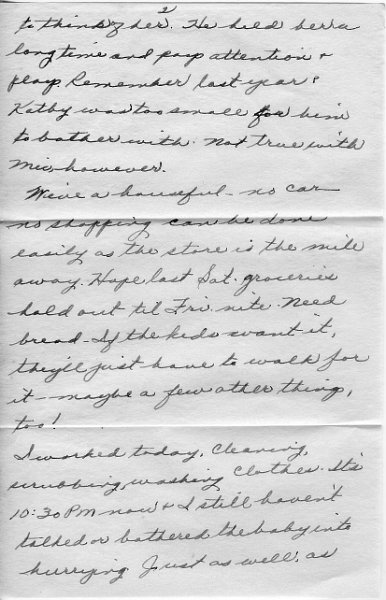 2
to think of her. He held her a
long time and pay attention &
play. Remember last year?
Kathy was too small for him
to bother with. Not true with
however.
We've a houseful - no car
no shopping can be done
easily as the store is the mile
away. Hope last Sat. groceries
hold out til Fri. nite. Need
bread - If the kids want it,
they'll just have to walk for
it - maybe a few other thing,
too!
I worked today, Cleaning,
scrubbing, washing clothes. It's
10:30 PM now & I still haven't
talked or bothered the baby into
hurrying. Just as well, as